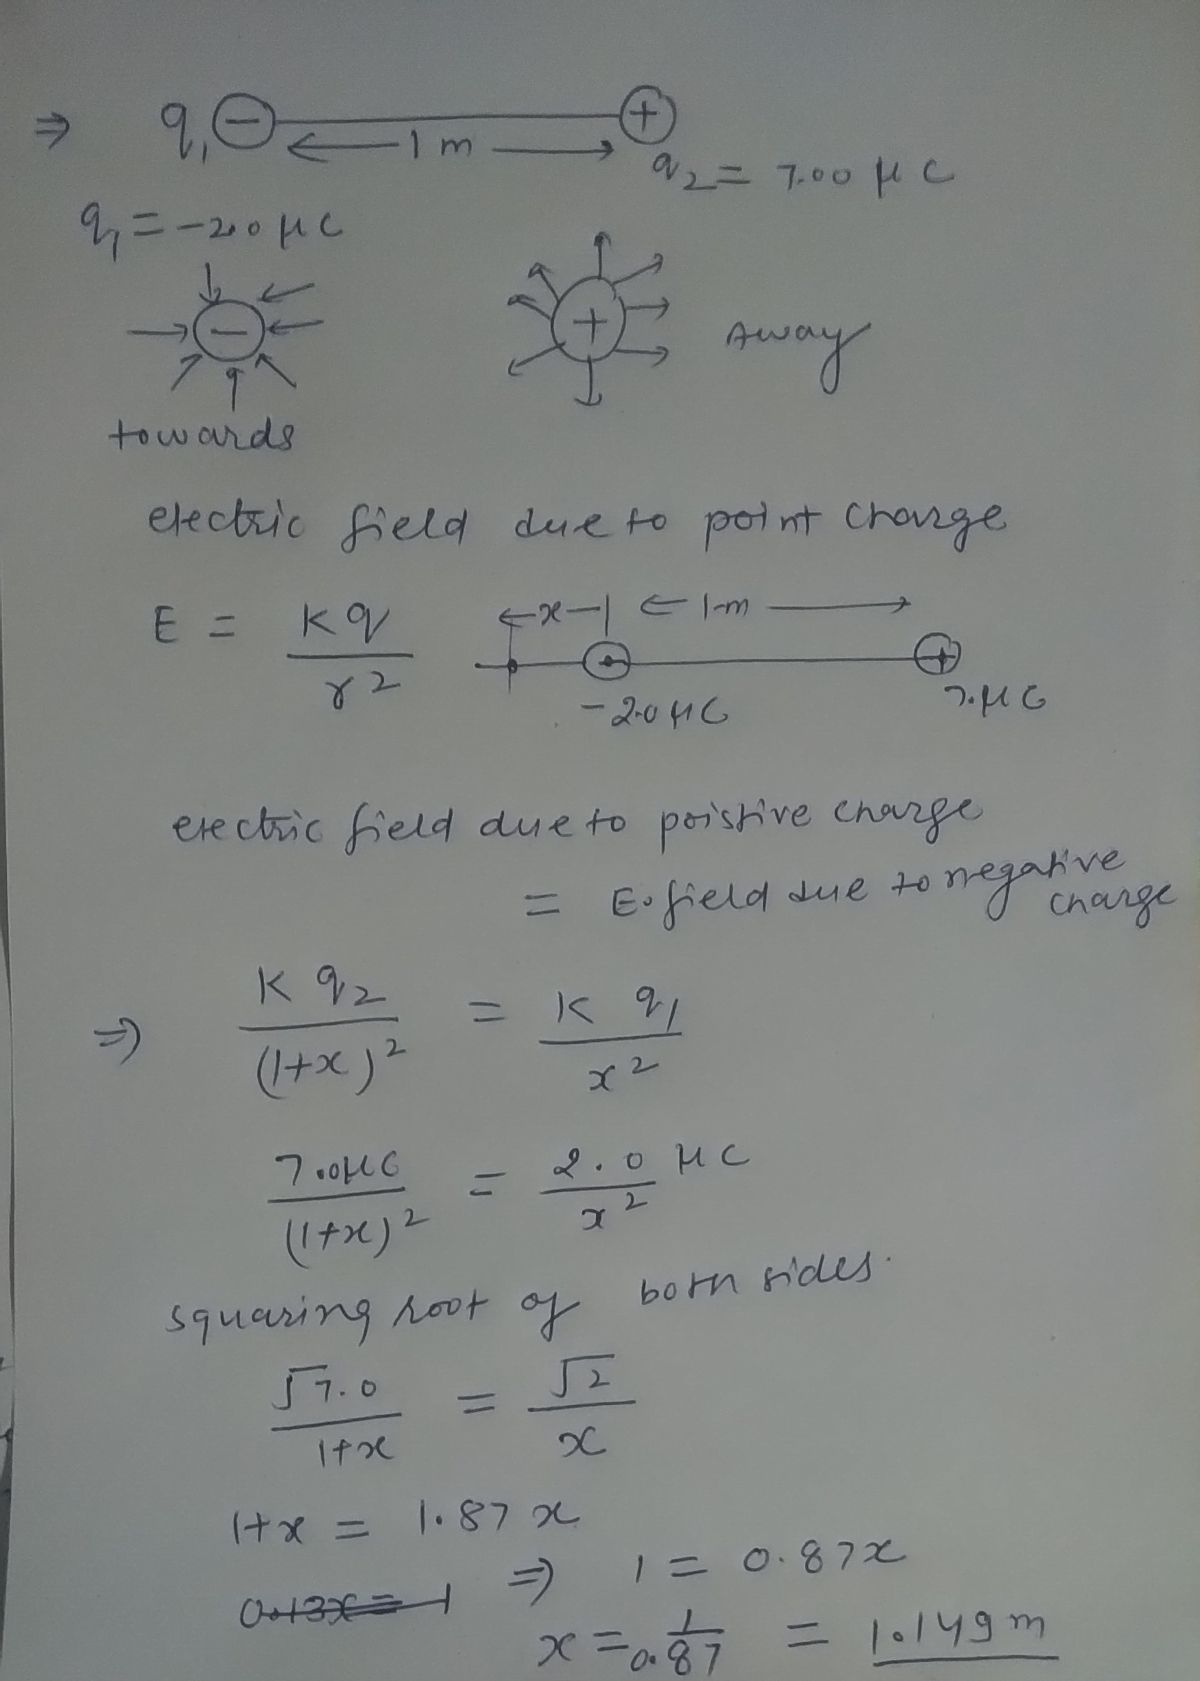 ⇒ q₁ ⊖ ← 1 m → ⊕
q₂ = 7.00 μC
q₁ = -2.0 μC
− +
Away
towards
electric field due to point charge
E = Kq / r² ←x−| ← 1m →
-2.0 μC 7. μC
electric field due to poistive charge
= E. field due to negative charge
⇒ K q₂ / (1+x)² = K q₁ / x²
7.0 μC / (1+x)² = 2.0 μC / x²
squaring root of both sides.
√7.0 / 1+x = √2 / x
1+x = 1.87 x
⇒ 1 = 0.87x
0.13x = 1
x = 1 / 0.87 = 1.149 m